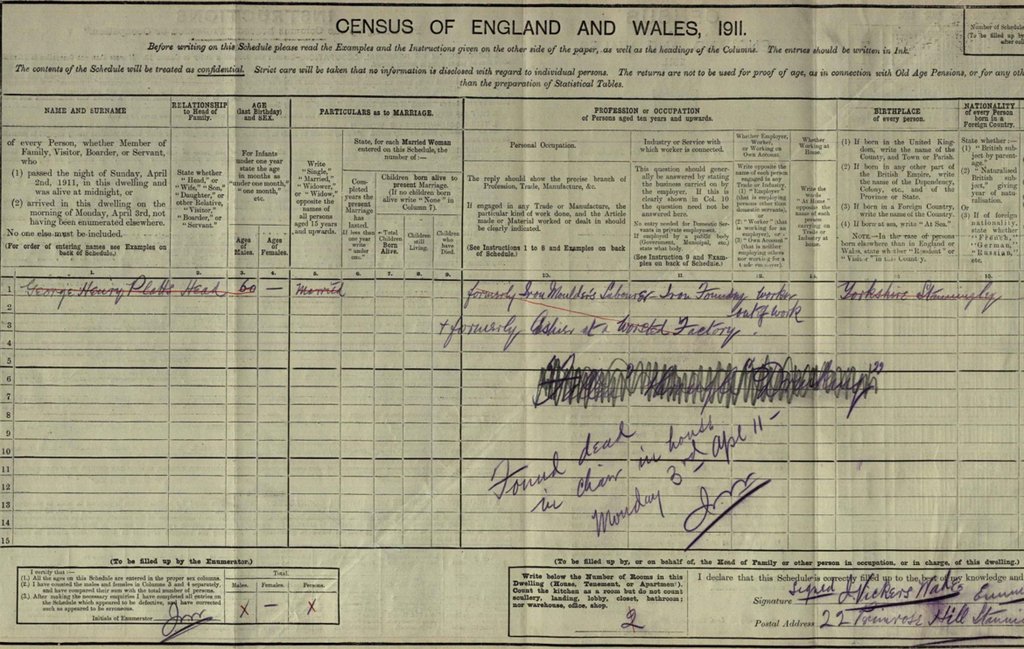 CENSUS OF ENGLAND AND WALES, 1911.
Number of Schedule
(To be filled up
after col
Before writing on this Schedule please read the Examples and the Instructions given on the other side of the paper, as well as the headings of the Columns. The entries should be written in Ink.
The contents of the Schedule will be treated as confidential. Strict care will be taken that no information is disclosed with regard to individual persons. The returns are not to be used for proof of age, as in connection with Old Age Pensions, or for any oth
than the preparation of Statistical Tables.
NAME AND SURNAME
of every Person, whether Member of
Family, Visitor, Boarder, or Servant,
who
(1) passed the night of Sunday, April
2nd, 1911, in this dwelling and
was alive at midnight, or
(2) arrived in this dwelling on the
morning of Monday, April 3rd, not
having been enumerated elsewhere.
No one else must be included.
(For order of entering names see Examples on
back of Schedule.)
RELATIONSHIP
to Head of
Family.
State whether
"Head," or
"Wife," "Son,"
"Daughter," or
other Relative,
"Visitor,"
"Boarder," or
"Servant."
AGE
(last Birthday)
and SEX.
For Infants
under one year
state the age
in months as
"under one month,"
"one month,"
etc.
Ages
of
Males.
Ages
of
Females.
PARTICULARS as to MARRIAGE.
Write
"Single,"
"Married,"
"Widower,"
or "Widow,"
opposite the
names of
all persons
aged 15 years
and upwards.
State, for each Married Woman
entered on this Schedule, the
number of :—
Completed
years the
present
Marriage
has
lasted.
If less than
one year
write
"under
one."
Children born alive to
present Marriage.
(If no children
born alive
write "None" in
Column 7).
Total
Children
Born
Alive.
Children
still
Living.
Children
who
have
Died.
PROFESSION or OCCUPATION
of Persons aged ten years and upwards.
Personal Occupation.
The reply should show the precise branch of
Profession, Trade, Manufacture, &c.
If engaged in any Trade or Manufacture, the
particular kind of work done, and the Article
made or Material worked or dealt in should
be clearly indicated.
(See Instructions 1 to 8 and Examples on back
of Schedule.)
Industry or Service with
which worker is connected.
This question should gener-
ally be answered by stating
the business carried on by
the employer. If this is
clearly shown in Col. 10
the question need not be
answered here.
No entry needed for Domestic Ser-
vants in private employment.
If employed by a public body
(Government, Municipal, etc.)
state what body.
(See Instruction 9 and Exam-
ples on back of Schedule.)
Whether Employer,
Worker, or
Working on Own
Account.
Whether
Working at
Home.
Write the
words
"At Home"
opposite the
name of each
person
carrying on
Trade or
Industry at
Home.
BIRTHPLACE
of every person.
(1) If born in the United King-
dom, write the name of the
County, and Town or Parish.
(2) If born in any other part of
the British Empire, write
the name of the Dependency,
Colony, etc., and of the
Province or State.
(3) If born in a Foreign Country,
write the name of the Country.
(4) If born at sea, write "At Sea."
NOTE.—In the case of persons
born elsewhere than in England or
Wales, state whether "Resident" or
"Visitor" in this Country.
NATIONALITY
of every Person
born in a
Foreign Country.
State whether :—
(1) "British
subject by
parent-
age,"
(2) "Naturalised
British sub-
ject," giving
year of natu-
ralisation,
Or
(3) If of foreign
nationality,
state whether
"French,"
"German,"
"Russian,"
etc.
1. 2. 3. 4. 5. 6. 7. 8. 9. 10. 11. 12. 13. 14. 15.
1 George Henry Platts Head 60 — Married formerly Iron Moulder's Labourer Iron Foundry Worker Yorkshire Stanningley
2 out of work
3 + formerly at a Worsted Factory.
4
5
6
7
8
9
10
11
12
13
14
15
Found dead
in chair in house
Monday 3rd Apl 11 —
(To be filled up by the Enumerator.)
I certify that :—
(1.) All the ages on this Schedule are entered in the proper sex columns.
(2.) I have counted the males and females in Columns 3 and 4 separately,
and have compared their sum with the total number of persons.
(3.) After making the necessary enquiries I have completed all entries on
the Schedule which appeared to be defective, and have corrected
such as appeared to be erroneous.
Initials of Enumerator
Total.
Males. Females. Persons.
X — X
(To be filled up by, or on behalf of, the Head of Family or other person in occupation, or in charge, of this dwelling.)
Write below the Number of Rooms in this
Dwelling (House, Tenement, or Apartment).
Count the kitchen as a room but do not count
scullery, landing, lobby, closet, bathroom;
nor warehouse, office, shop.
2
I declare that this Schedule is correctly filled up to the best of my knowledge and
Signed
Signature Vickers
Postal Address 22 Primrose Hill Stanni